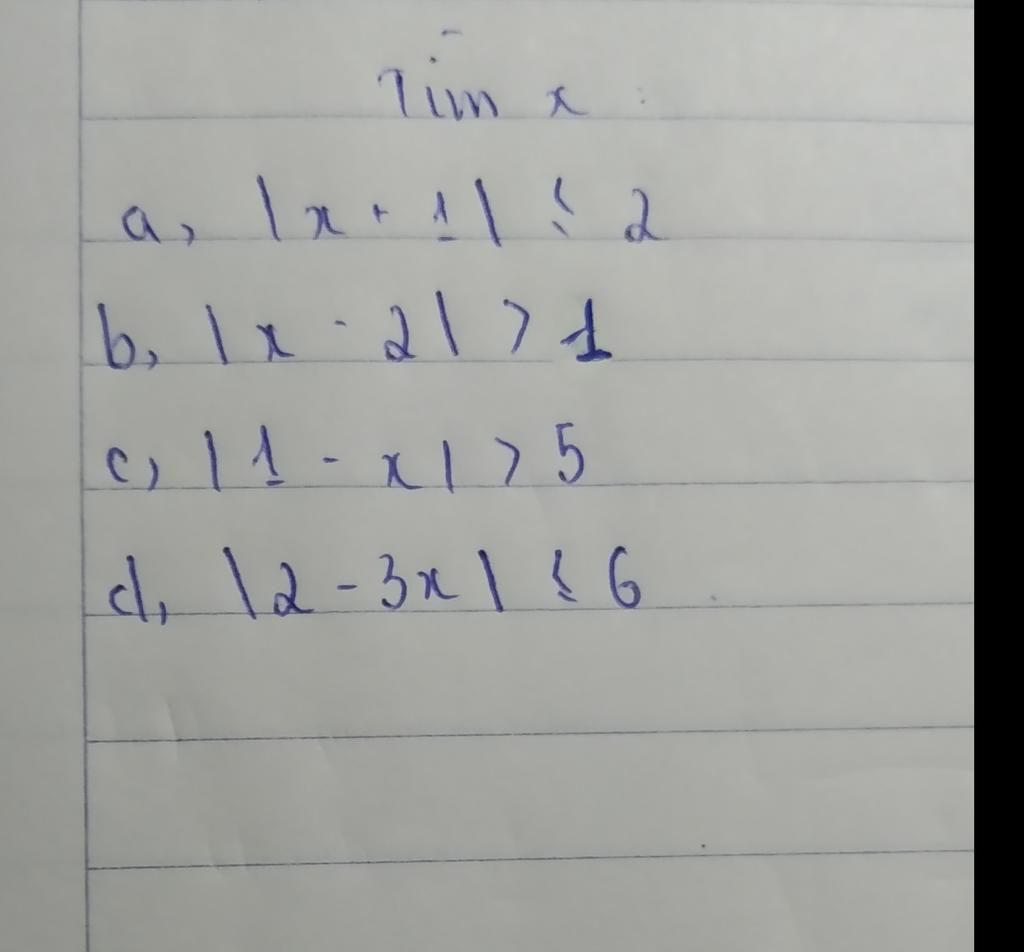 Tìm x :
a, |x + 1| ≤ 2
b, |x - 2| > 1
c, |1 - x| > 5
d, |2 - 3x| ≤ 6